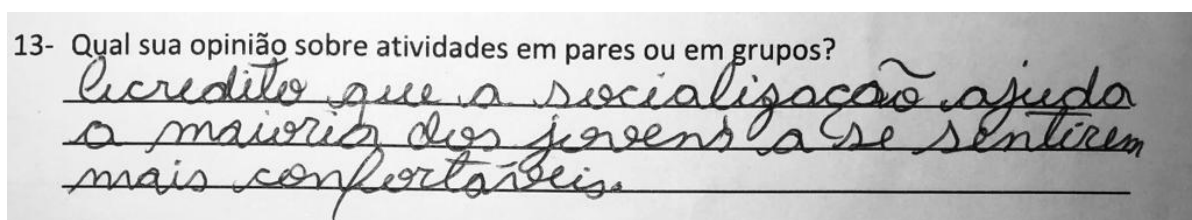 13- Qual sua opinião sobre atividades em pares ou em grupos?
Acredito que a socialização ajuda
a maioria dos jovens a se sentirem
mais confortáveis.